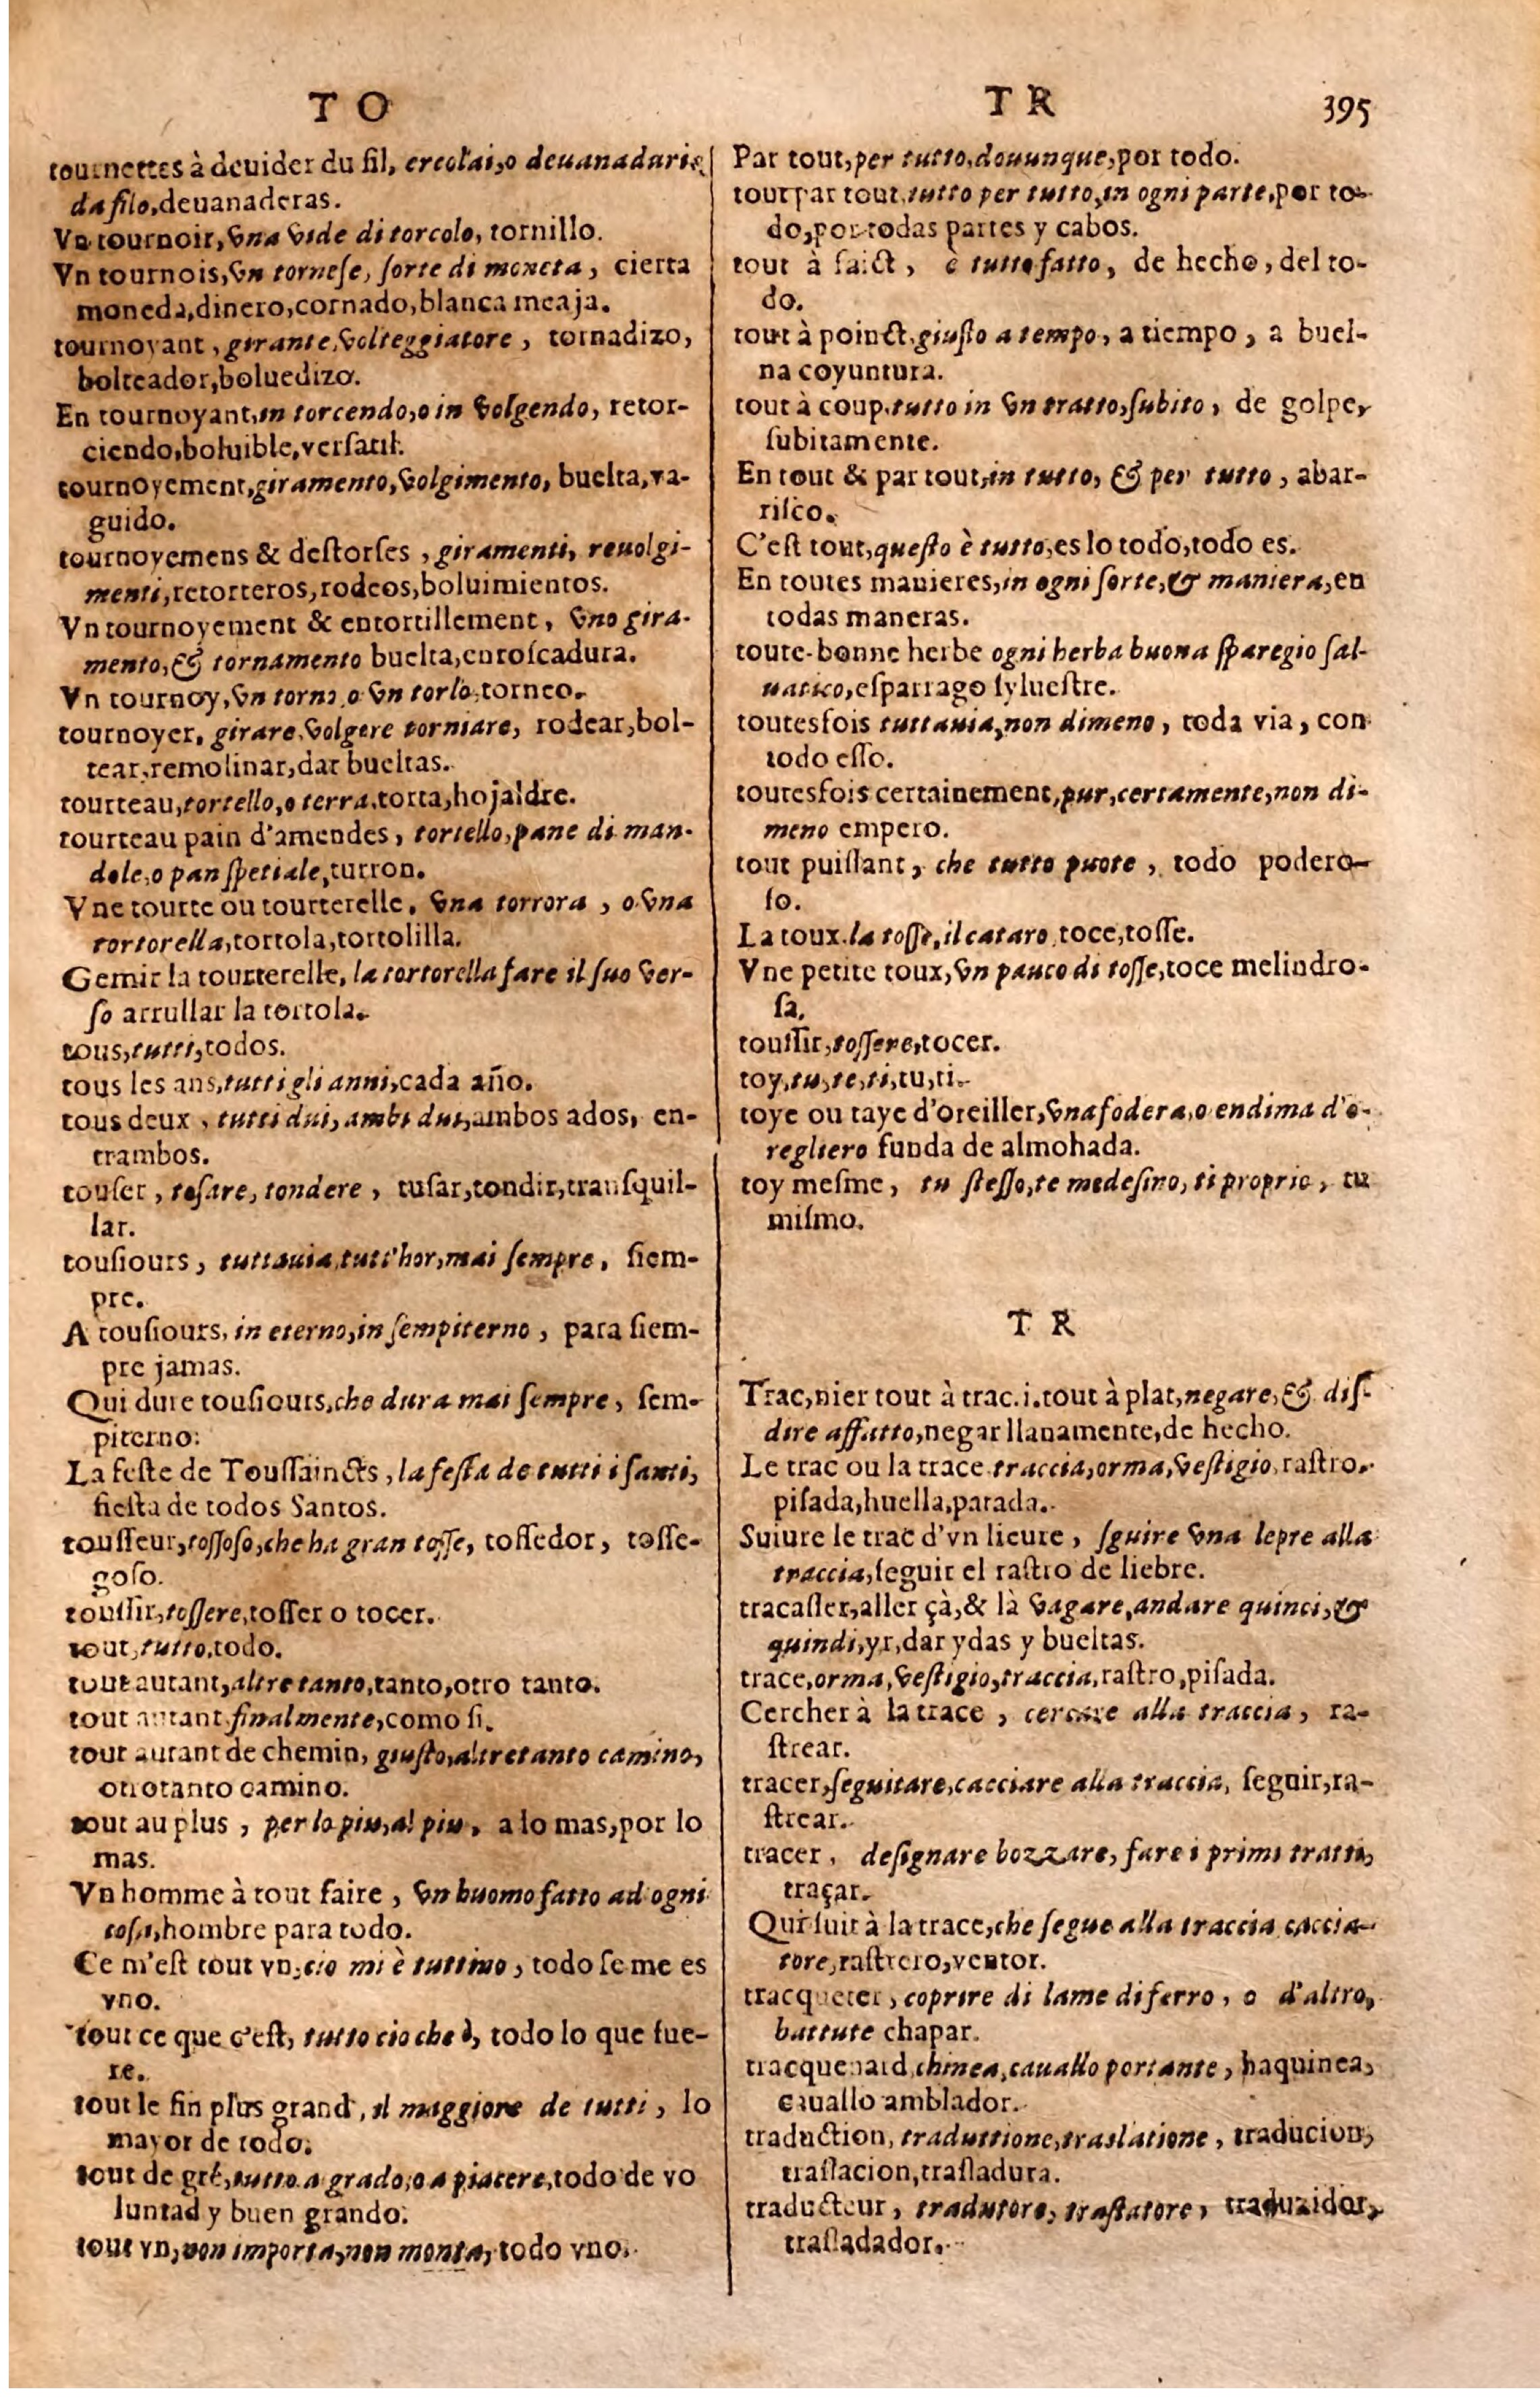 T O
tournettes à deuider du fil, ercolai, o deuanadurie
da filo, deuanaderas.
Vn tournoir, vna vide di torcolo, tornillo.
Vn tournois, vn torneſe, ſorte di moneta, cierta
moneda, dinero, cornado, blanca meaja.
tournoyant, girante, volteggiatore, tornadizo,
bolteador, boluedizo.
En tournoyant, in torcendo, o in volgendo, retor-
ciendo, boluible, verſatil.
tournoyement, giramento, volgimento, buelta, va-
guido.
tournoyemens & deſtorſes, giramenti, reuolgi-
menti, retorteros, rodeos, boluimientos.
Vn tournoyement & entortillement, vno gira-
mento, & tornamento buelta, enroſcadura.
Vn tournoy, vn torno, o vn torlo, torneo.
tournoyer, girare, volgere torniare, rodear, bol-
tear, remolinar, dar bueltas.
tourteau, tortello, o terra, torta, hojaldre.
tourteau pain d'amendes, tortello, pane di man-
dole, o pan ſpetiale, turron.
Vne tourte ou tourterelle, vna torrora, o vna
tortorella, tortola, tortolilla.
Gemir la tourterelle, la tortorella fare il ſuo ver-
ſo arrullar la tortola.
tous, tutti, todos.
tous les ans, tutti gli anni, cada año.
tous deux, tutti dui, ambi dui, ambos ados, en-
trambos.
touſer, toſare, tondere, tuſar, tondir, tranſquil-
lar.
touſiours, tuttauia, tutt'hor, mai ſempre, ſiem-
pre.
A touſiours, in eterno, in ſempiterno, para ſiem-
pre jamas.
Qui dure touſiours, che dura mai ſempre, ſem-
piterno.
La feſte de Touſſaincts, la feſta de tutti i ſanti,
fieſta de todos Santos.
touſſeur, toſſoſo, che ha gran toſſe, toſſedor, toſſe-
goſo.
touſſir, toſſere, toſſer o tocer.
tout, tutto, todo.
tout autant, altretanto, tanto, otro tanto.
tout autant finalmente, como ſi.
tout autant de chemin, giuſto, altretanto camino,
otrotanto camino.
tout au plus, per lo piu, al piu, a lo mas, por lo
mas.
Vn homme à tout faire, vn huomo fatto ad ogni
coſa, hombre para todo.
Ce m'eſt tout vn, cio mi è tuttuno, todo ſe me es
vno.
tout ce que c'eſt, tutto cio che è, todo lo que fue-
re.
tout le fin plus grand, il maggiore de tutti, lo
mayor de todo.
tout de gré, tutto a grado, o a piacere, todo de vo
luntad y buen grando.
tout vn, non importa, non monta, todo vno.
T R
395
Par tout, per tutto, douunque, por todo.
tout par tout, tutto per tutto, in ogni parte, por to-
do, por todas partes y cabos.
tout à faict, è tutto fatto, de hecho, del to-
do.
tout à poinct, giuſto a tempo, a tiempo, a buel-
na coyuntura.
tout à coup, tutto in vn tratto, ſubito, de golpe,
ſubitamente.
En tout & par tout, in tutto, & per tutto, abar-
riſco.
C'eſt tout, queſto è tutto, es lo todo, todo es.
En toutes manieres, in ogni ſorte, & maniera, en
todas maneras.
toute-bonne herbe ogni herba buona ſparegio ſal-
uatico, eſparrago ſylueſtre.
toutesfois tuttauia, non dimeno, toda via, con
todo eſſo.
toutesfois certainement, pur, certamente, non di-
meno empero.
tout puiſſant, che tutto puote, todo podero-
ſo.
La toux, la toſſe, il cataro, toce, toſſe.
Vne petite toux, vn pauco di toſſe, toce melindro-
ſa.
touſſir, toſſere, tocer.
toy, tu, te, ti, tu, ti.
toye ou taye d'oreiller, vna fodera, o endima d'o-
regliero funda de almohada.
toy meſme, tu ſteſſo, te medeſimo, ti proprio, tu
miſmo.
T R
Trac, nier tout à trac. i. tout à plat, negare, & diſ-
dire affatto, negar llanamente, de hecho.
Le trac ou la trace traccia, orma, veſtigio, raſtro,
piſada, huella, parada.
Suiure le trac d'vn lieure, ſguire vna lepre alla
traccia, ſeguir el raſtro de liebre.
tracaſſer, aller çà, & là vagare, andare quinci, &
quindi, yr, dar ydas y bueltas.
trace, orma, veſtigio, traccia, raſtro, piſada.
Cercher à la trace, cercare alla traccia, ra-
ſtrear.
tracer, ſeguitare, cacciare alla traccia, ſeguir, ra-
ſtrear.
tracer, deſignare bozzare, fare i primi tratti,
traçar.
Qui ſuit à la trace, che ſegue alla traccia caccia-
tore, raſtrero, ventor.
tracqueter, coprire di lame di ferro, o d'altro,
battute chapar.
tracquenard, chinea, cauallo portante, haquinea,
cauallo amblador.
traduction, traduttione, traslatione, traducion,
traſlacion, traſladura.
traducteur, tradutore, traſtatore, traduzidor,
traſladador.